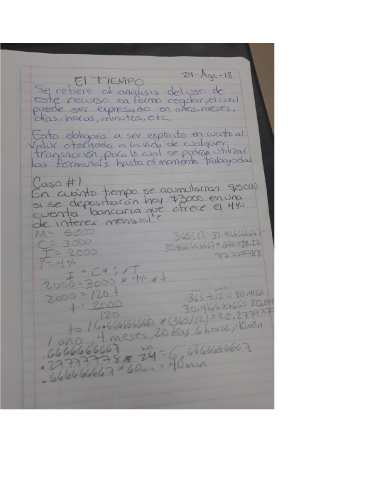 29-Ago-18
El TIEMPO
Se refiere al analisis del uso de
este recurso en forma regular, el cual
puede ser expresado en años, meses,
días, horas, minutos, etc.
Esto obligara a ser explicito en cuanto al
valor otorgado a la vida de cualquier
transacción, para lo cual se podran utilizar
las formulas hasta el momento trabajadas
Caso #1
En cuánto tiempo se acumularran $5000
si se depositaron hoy $3000 en una
cuenta bancaria que ofrece el 4%
de interes mensual?
M = 5000
C = 3000
I = 2000
T = 4%
I = C * i * T
2000 = 3000 * 4% * t
2000 = 120 t
t = 2000
120
365 ÷ 12 = 30.4166
t = 16.666666660 * (365/12) = 20.2777778
1 año, 4 meses, 20 días, 6 horas, 40 min
.6666666667
.27777778 * 24 = 6.6666666667
.666666667 * 60 min = 40 min